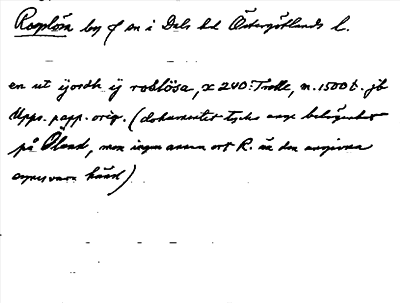 Rosplösa by o sn i Dals hd Östergötlands l.
en ut ijordh ij roslösa, x 240: Trolle, n. 1500 t. jb
Upps. papp. orig. (dokumentet tycks ange belägenhet
på Öland, men ingen annan ort R. än den angivna
synes vara känd)